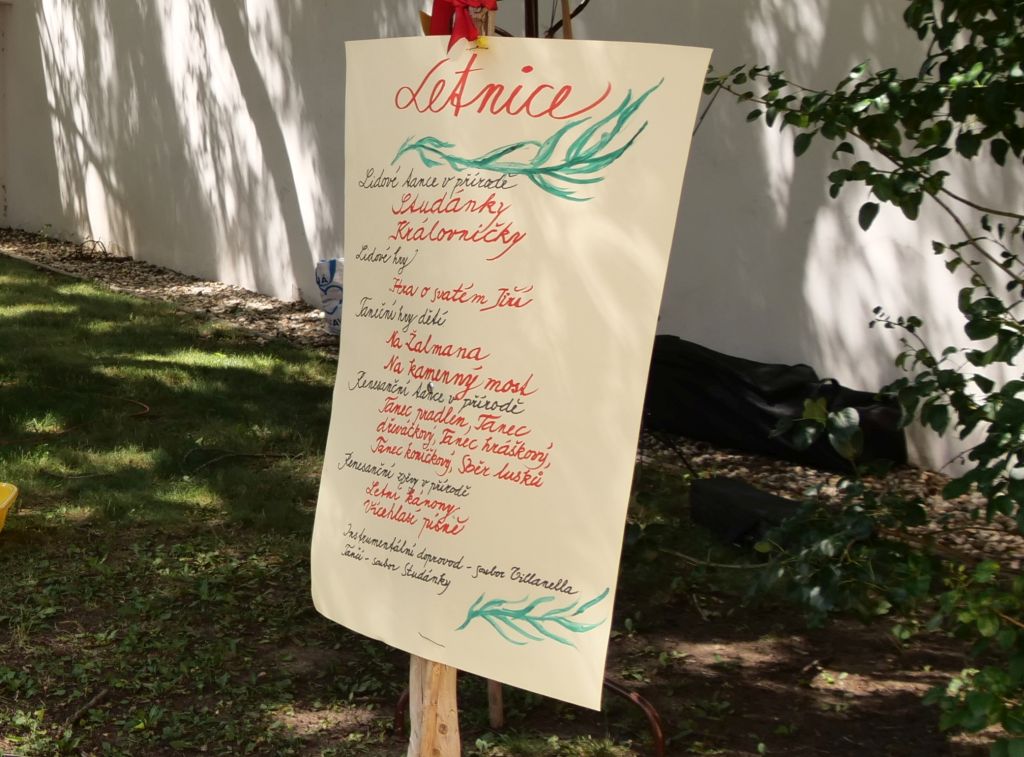 Letnice
Lidové tance v přírodě
Studánky
Královničky
Lidové hry
Hra o svatém Jiří
Taneční hry dětí
Na Žalmana
Na kamenný most
Renesanční tance v přírodě
Tanec pradlen, Tanec
dřeváčkový, Tanec hráškový,
Tanec koníčkový, Sběr lusků
Renesanční zpěvy v přírodě
Letní kánony
Vícehlasé písně
Instrumentální doprovod - soubor Villanella
Tančí - soubor Studánky